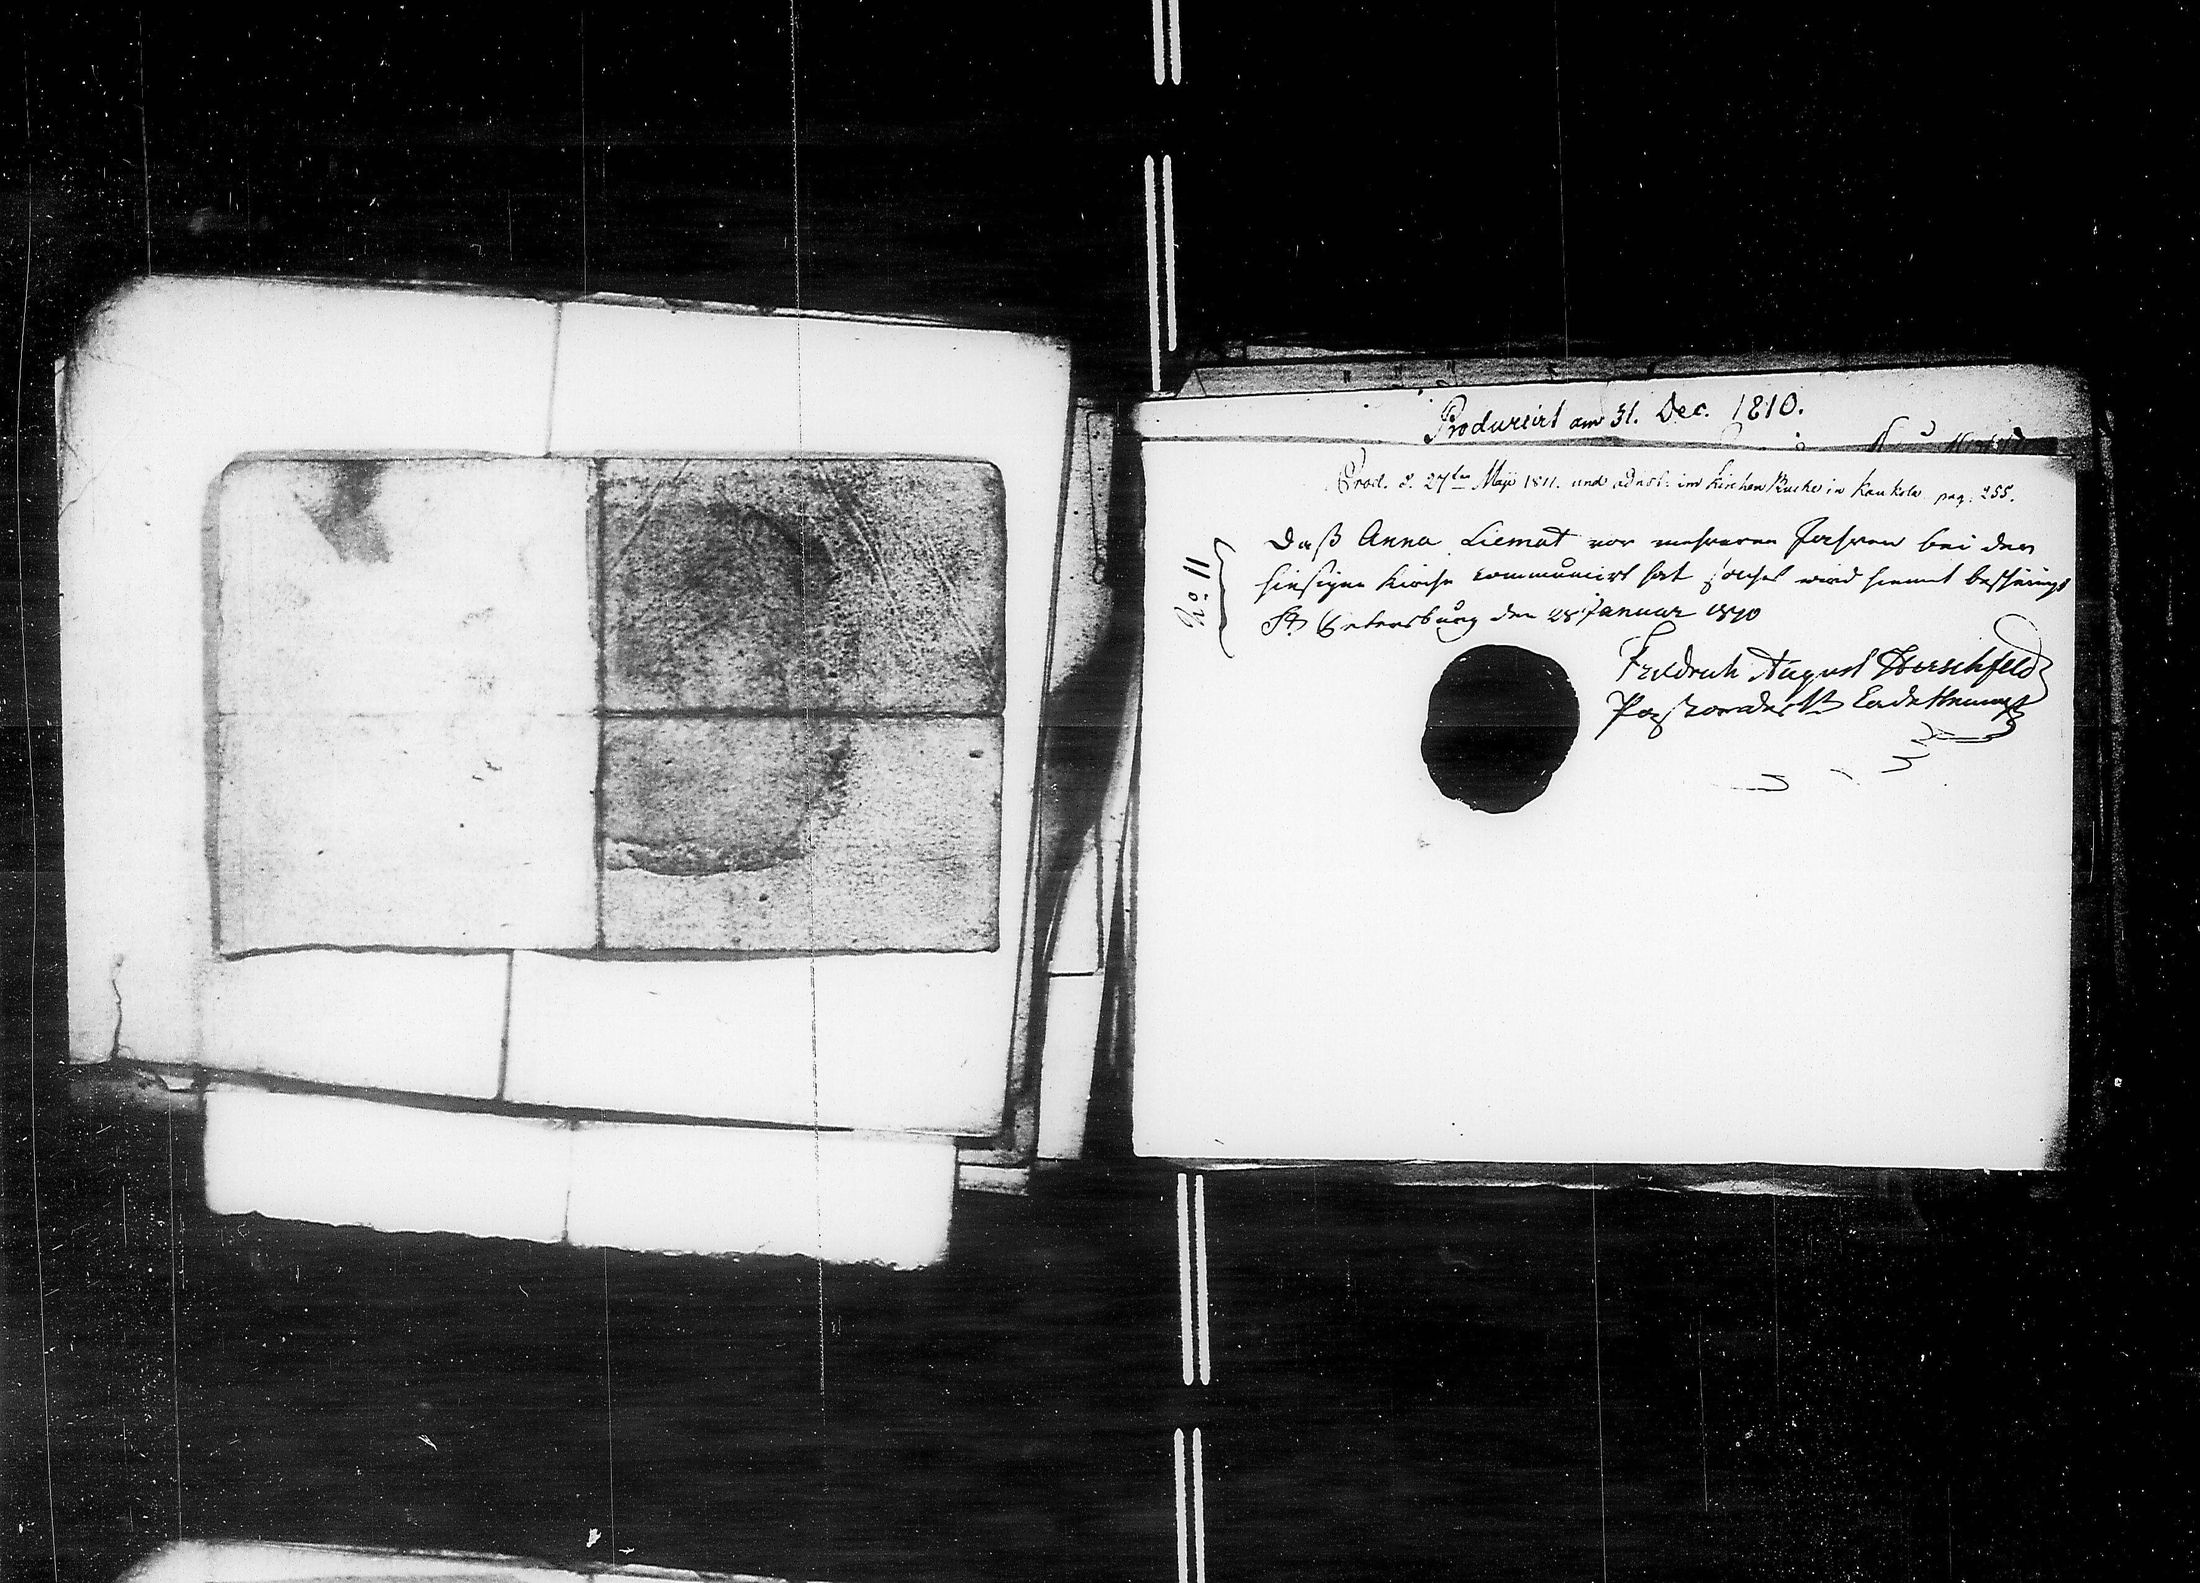 Producirt am 31. Dec. 1810.
Prod. d. 27ten Maji 1811. und adnot: im Kirchen Buche in Kaukola pag: 255.
No 11
Daß Anna Liemat vor mehreren Jahren bei der
hiesigen Kirche communicirt hat solches wird hiemit bescheinigt
St Petersburg den 28 Januar 1810
Friedrich August Hirschfeld
Pastor